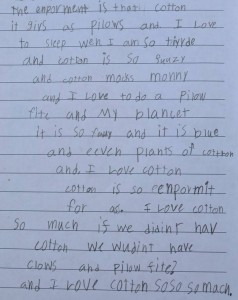 the enporment is that. cotton
it givs as pilows and I Love
to sleep wen I am so tiyrde
and cottan is so funzy
and cotton maks monny
and I Love to do a pilow
fite and My blancet
it is so fuzy and it is blue
and eeven plants of cottton
and. I Love cotton
cotton is so renpormit
for as. I Love cotton
So much if we didint hav
cotton we wudint have
clows and pilow fites
and I Love cotton SoSo So mach.